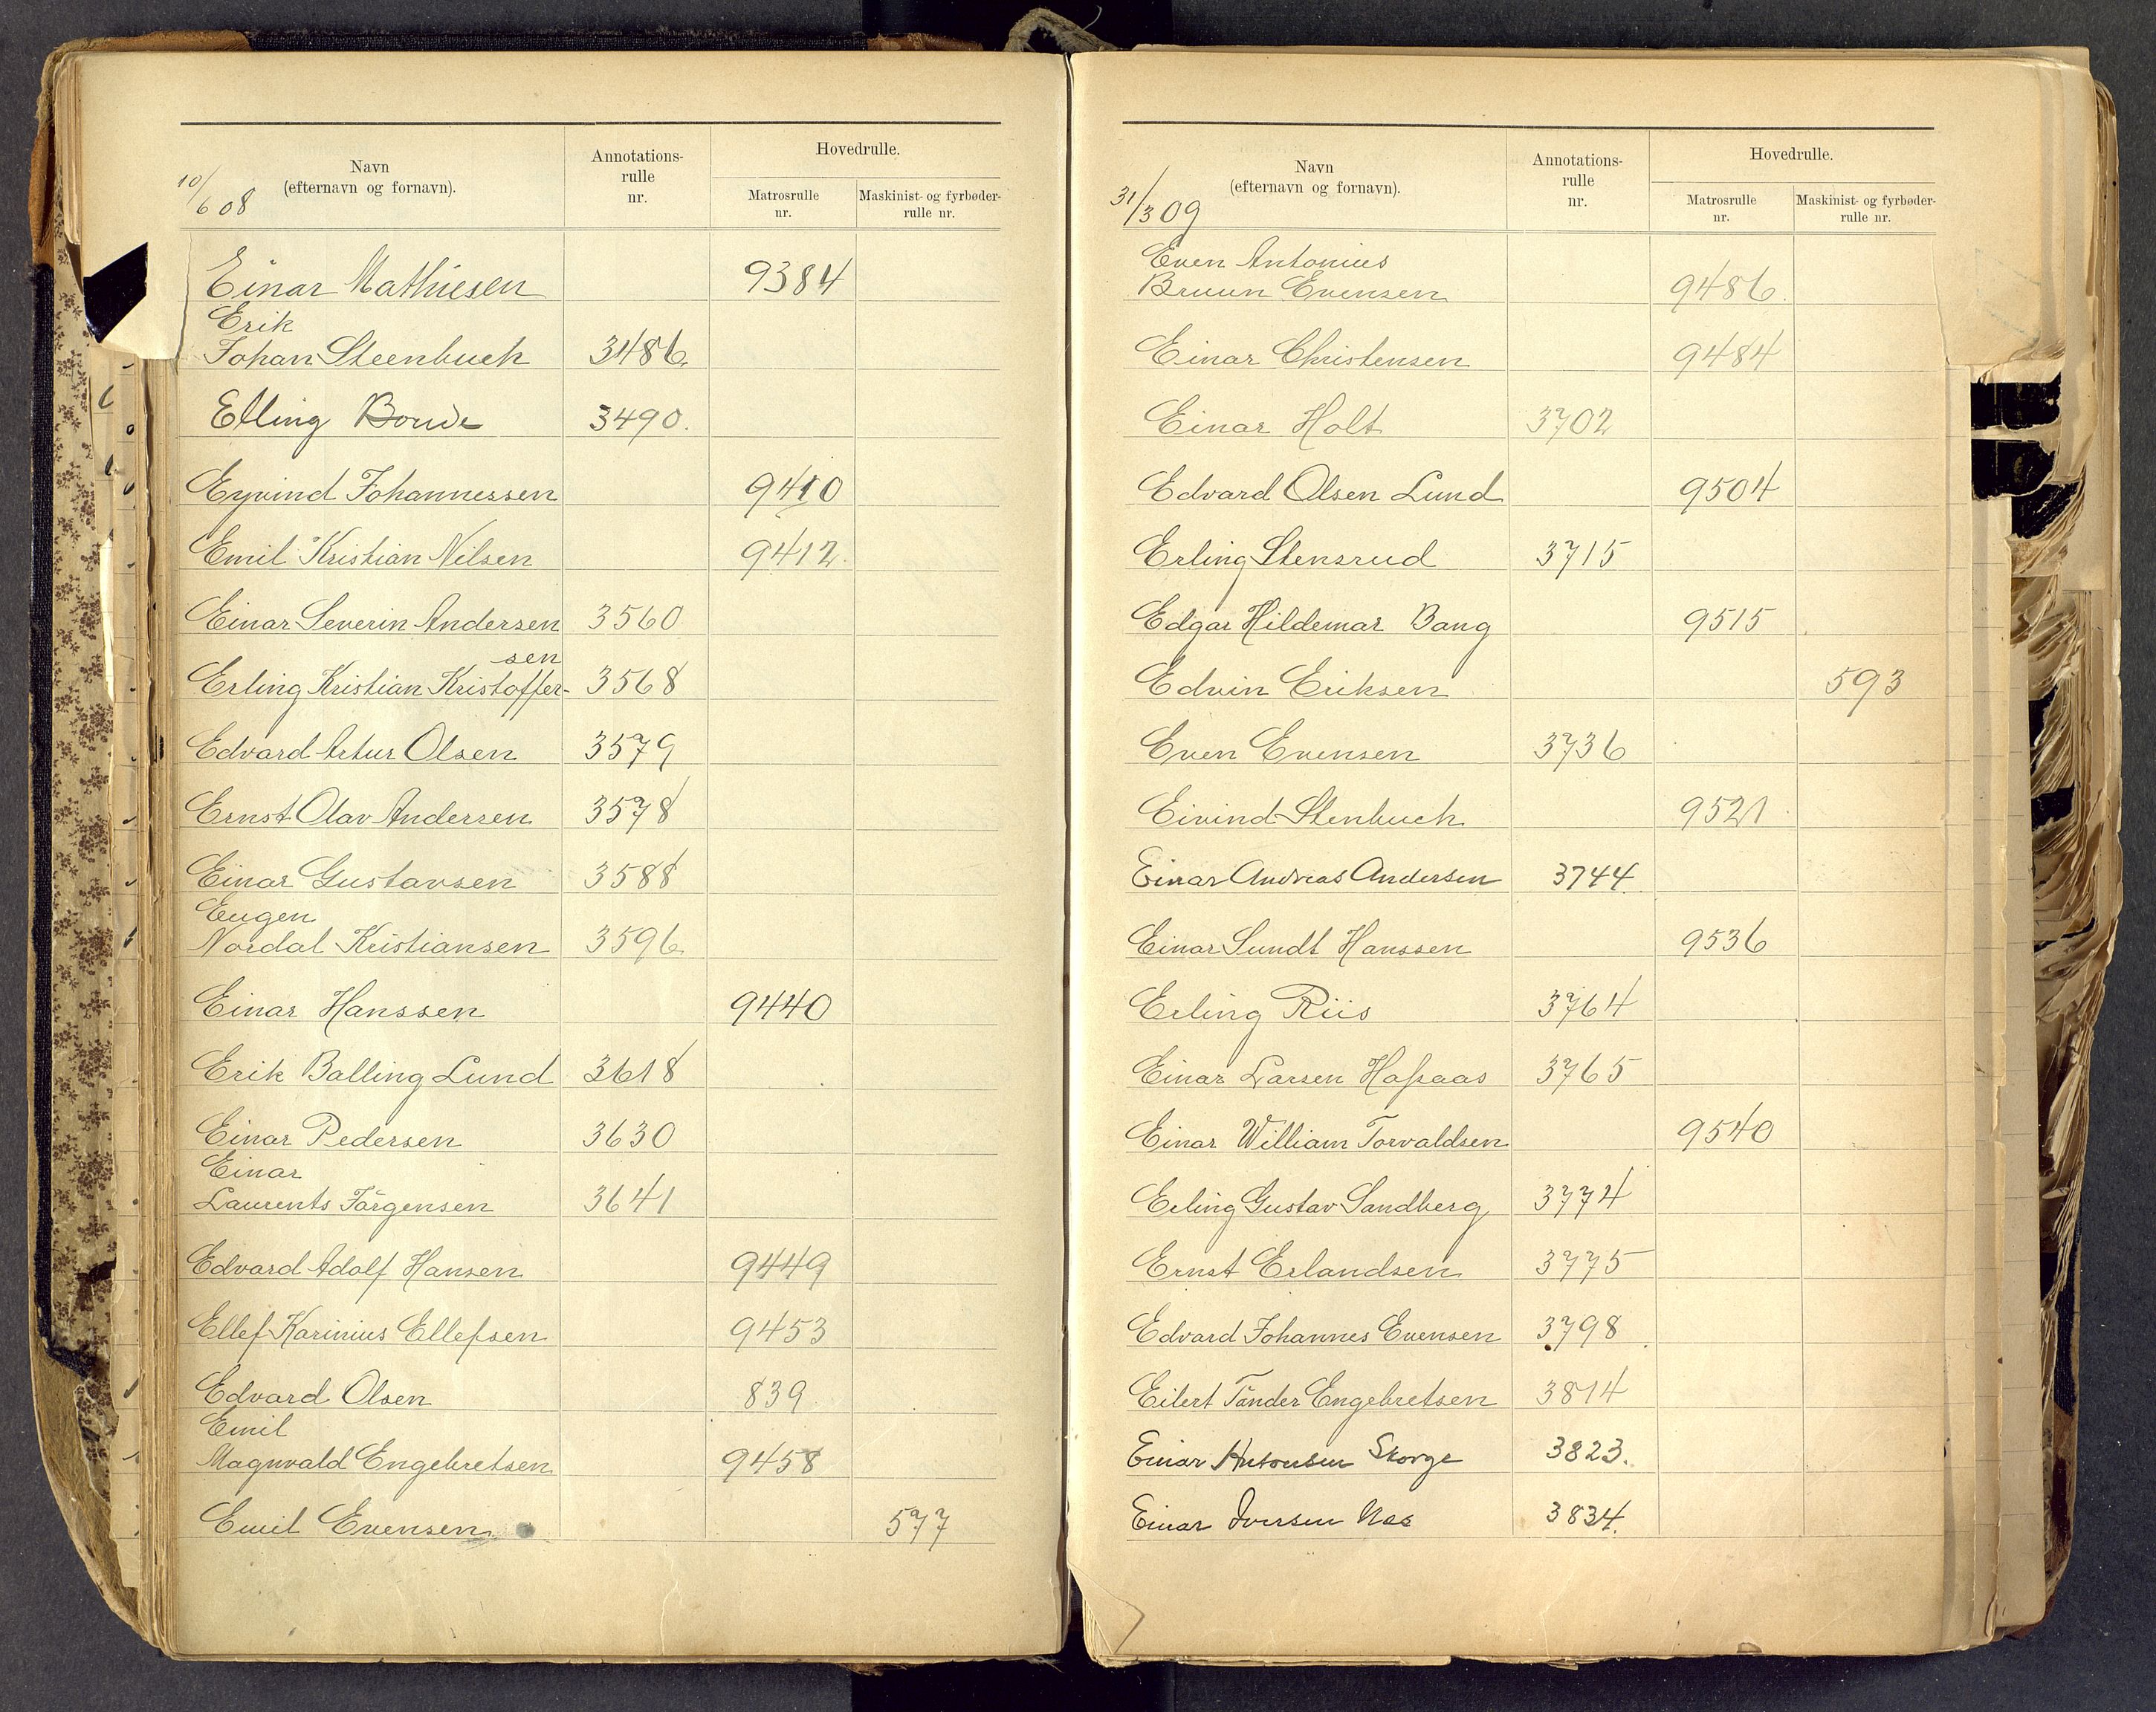 Navn
(efternavn og fornavn).
Annotations-
rulle
nr.
Hovedrulle.
Matrosrulle
nr.
Maskinist- og fyrbøder-
rulle nr.
10/6 08
Einar Mathiesen 9384
Erik
Johan Steenbuch 3486.
Elling Bonde 3490.
Eyvind Johannessen 9410
Emil Kristian Nilsen 9412.
Einar Severin Andersen 3560
sen
Erling Kristian Kristoffer- 3568
Edvard Artur Olsen 3579
Ernst Olav Andersen 3578
Einar Gustavsen 3588
Eugen
Nordal Kristiansen 3596.
Einar Hanssen 9440
Erik Balling Lund 3618
Einar Pedersen 3630
Einar
Laurents Jörgensen 3641
Edvard Adolf Hansen 9449
Ellef Karinius Ellefsen 9453
Edvard Olsen 839
Emil
Magnvald Engebretsen 9458
Emil Evensen 577
Navn
(efternavn og fornavn).
Annotations-
rulle
nr.
Hovedrulle.
Matrosrulle
nr.
Maskinist- og fyrbøder-
rulle nr.
31/3 09
Even Antonius
Bruun Evensen 9486.
Einar Christensen 9484
Einar Holt 3702
Edvard Olsen Lund 9504
Erling Stensrud 3715
Edgar Hildemar Bang 9515
Edvin Eriksen 593
Even Evensen 3736
Eivind Stenbuch 9521
Einar Andreas Andersen 3744.
Einar Sundt Hanssen 9536
Erling Riis 3764
Einar Larsen 3765
Einar William Torvaldsen 9540
Erling Gustav Sandberg 3774
Ernst Erlandsen 3775
Edvard Johannes Evensen 3798
Eilert Tönder Engebretsen 3814
Einar Antonsen Skorge 3823.
Einar Iversen Næs 3834.